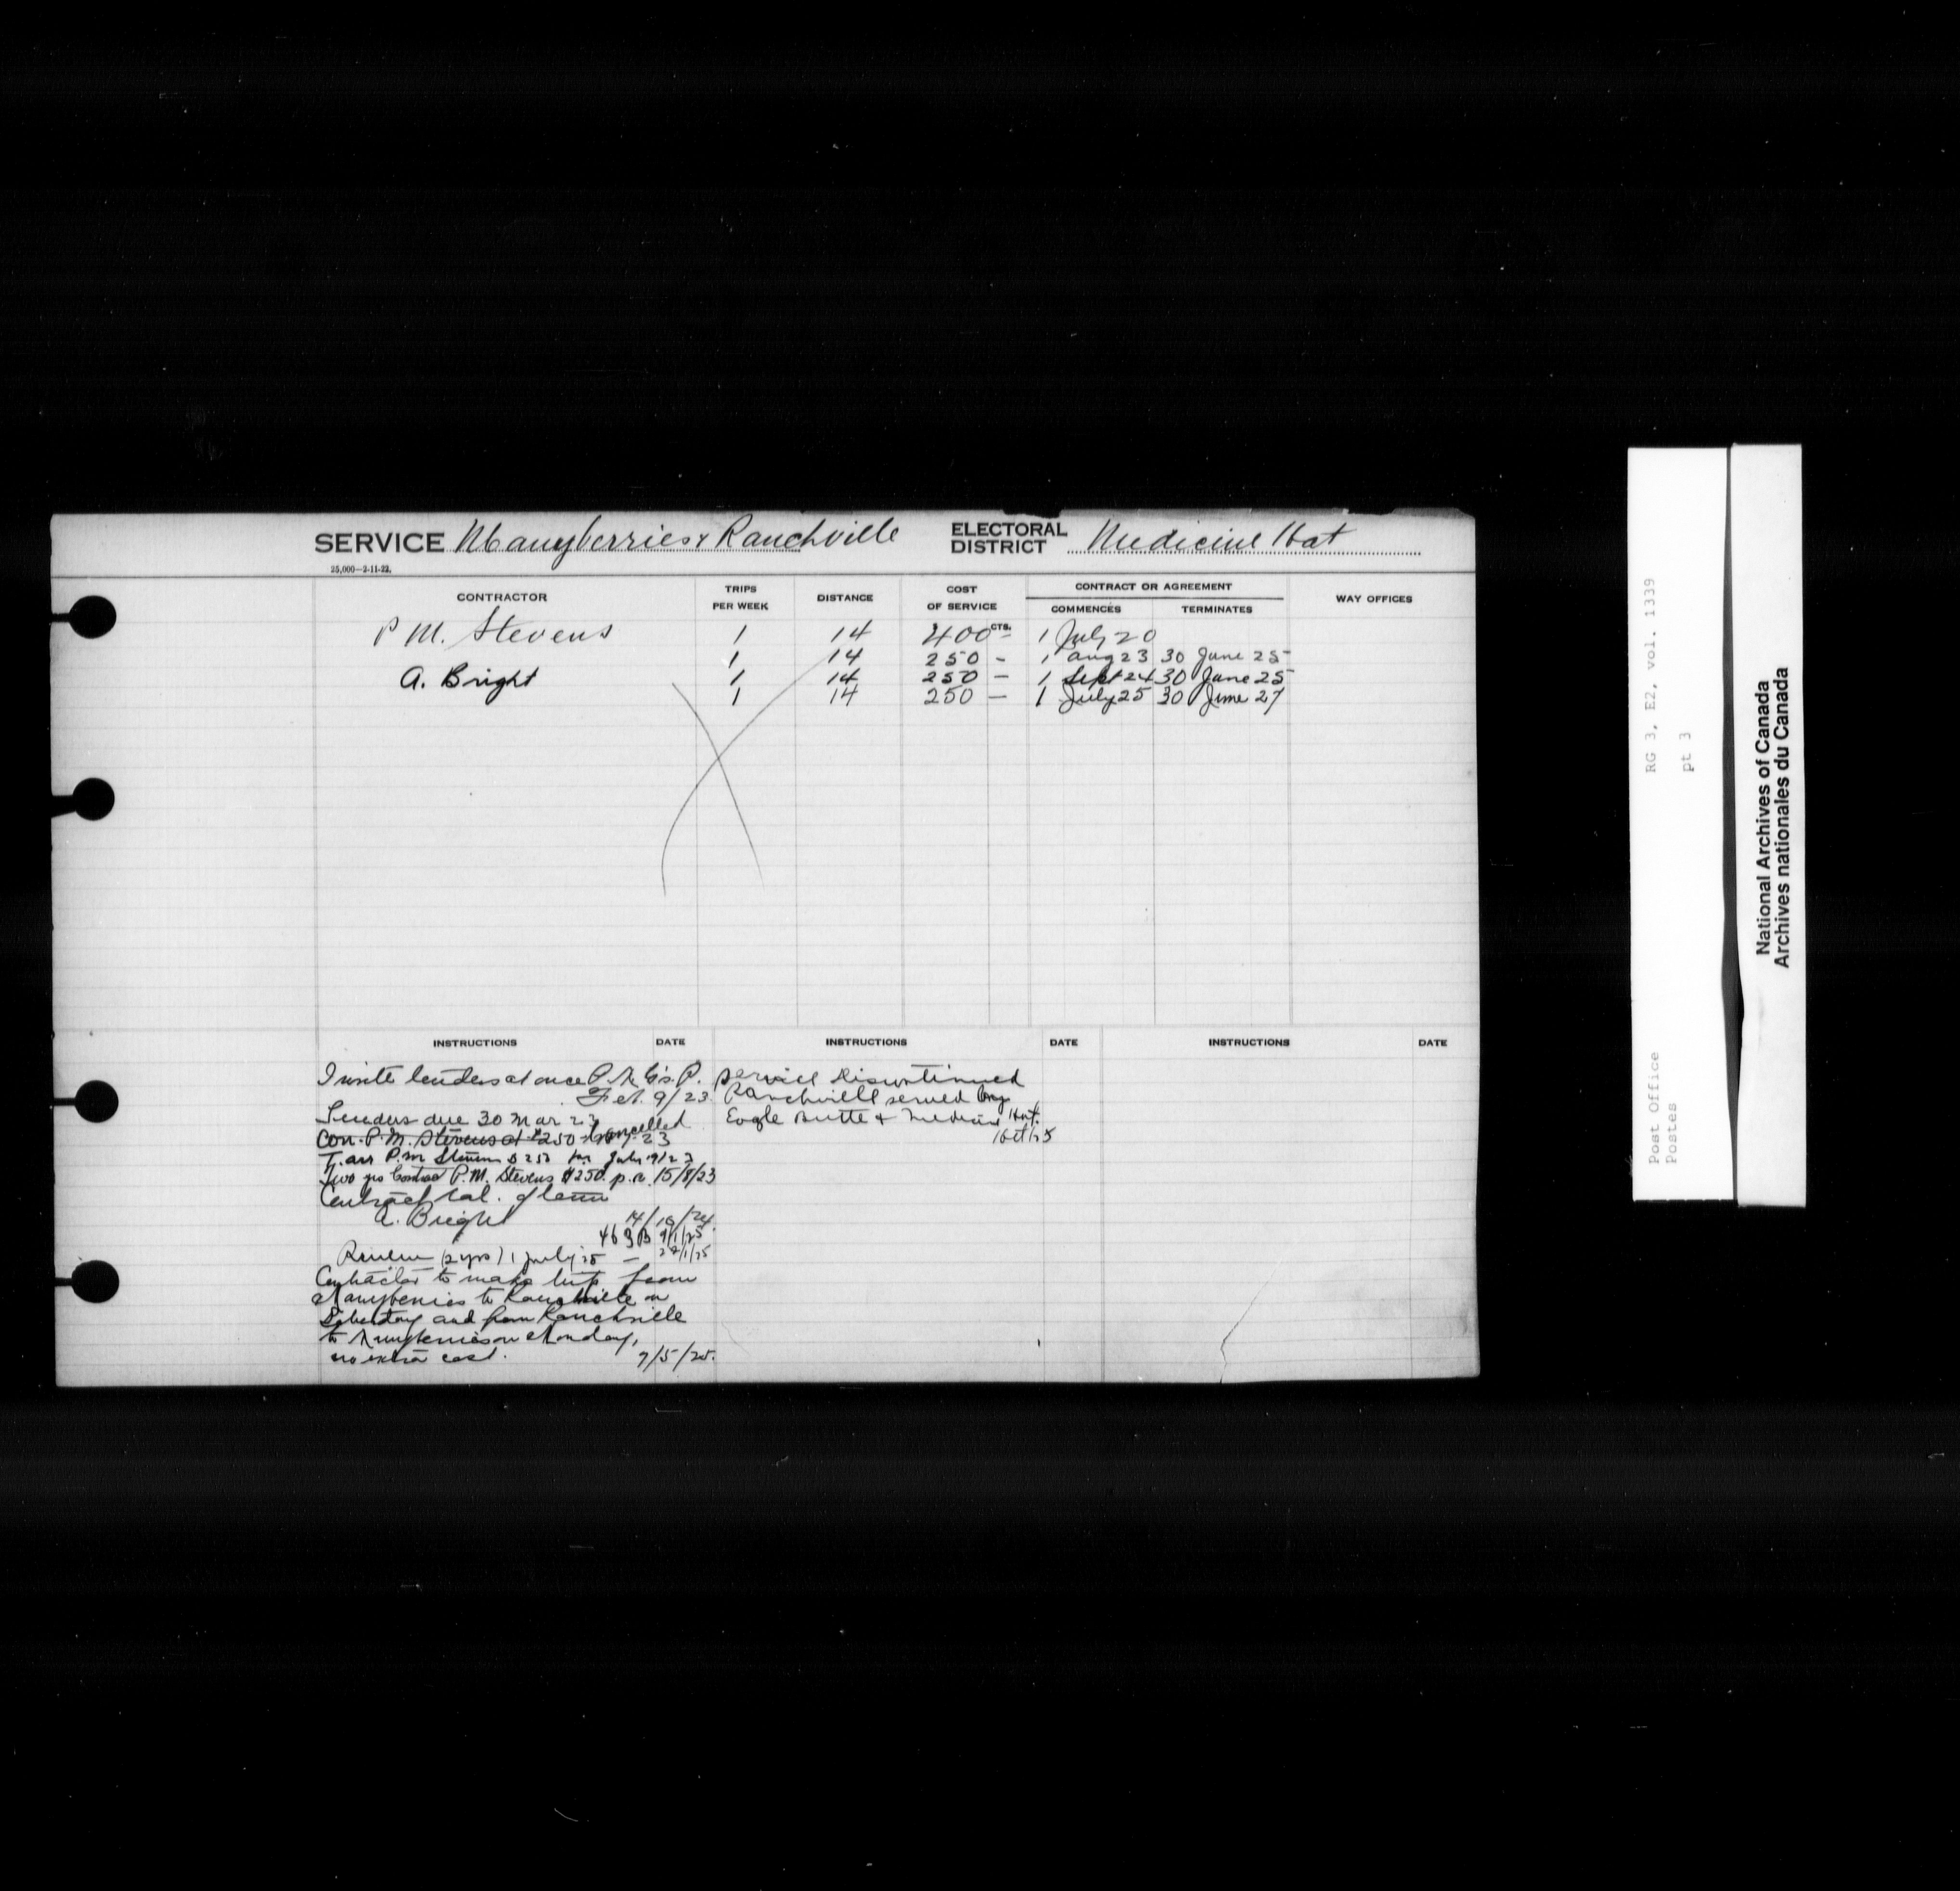 SERVICE Manyberries & Ranchville ELECTORAL DISTRICT Medicine Hat
25,000—2-11-22.
CONTRACTOR TRIPS PER WEEK DISTANCE COST OF SERVICE CONTRACT OR AGREEMENT WAY OFFICES
CTS. COMMENCES TERMINATES
P M. Stevens 1 14 400 - 1 July 20
1 14 250 - 1 Aug 23 30 June 25
A. Bright 1 14 250 — 1 Sept 24 30 June 25
1 14 250 — 1 July 25 30 June 27
INSTRUCTIONS DATE INSTRUCTIONS DATE INSTRUCTIONS DATE
Invite tenders at once P.M.G's. P.
Feb. 9/23
Tenders due 30 Mar 23
Con. P.M. Stevens at $250 cancelled 23
T. arr P.M Stevens $250 July 19/23
Two yrs Contract P.M. Stevens $250. p.a. 15/8/23
Contract cal. of
A. Bright 14/10/24
9/1/25
Renew (2 yrs) 1 July 25 — 22/1/25
Contractor to make trip from
Manyberries to Ranchville on
Saturday and from Ranchville
to Manyberries on Monday,
no extra cost. 7/5/25.
Service Discontinued
Ranchville served by
Eagle Butte & Medicine Hat.
1 Oct/25
RG 3, E2, vol. 1339
pt 3
Post Office
Postes
National Archives of Canada
Archives nationales du Canada